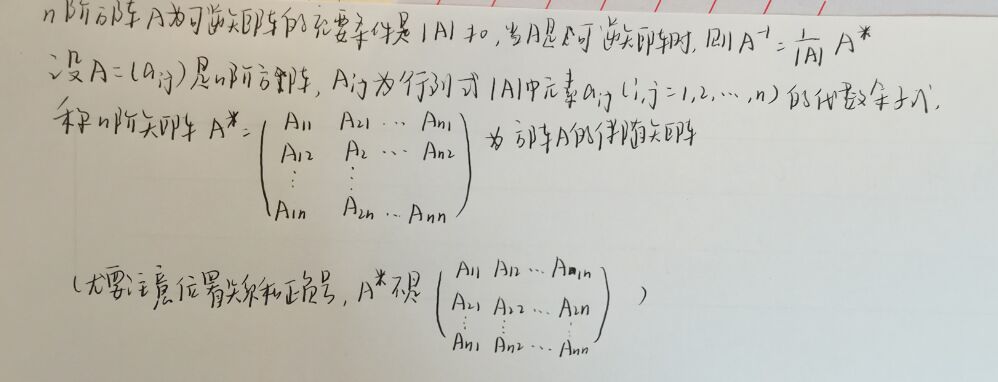 n阶方阵A为可逆矩阵的充要条件是|A|≠0,当A是可逆矩阵时,则A⁻¹=1/|A| A*
设A=(aij)是n阶方阵,Aij为行列式|A|中元素aij(i,j=1,2,…,n)的代数余子式,
称n阶矩阵A*=(A11 A21 … An1
A12 A2 … An2
⋮ ⋮
A1n A2n … Ann)为方阵A的伴随矩阵
(尤要注意位置关系和正负号,A*不是(A11 A12 … A1n
A21 A22 … A2n
⋮ ⋮ ⋮
An1 An2 … Ann))